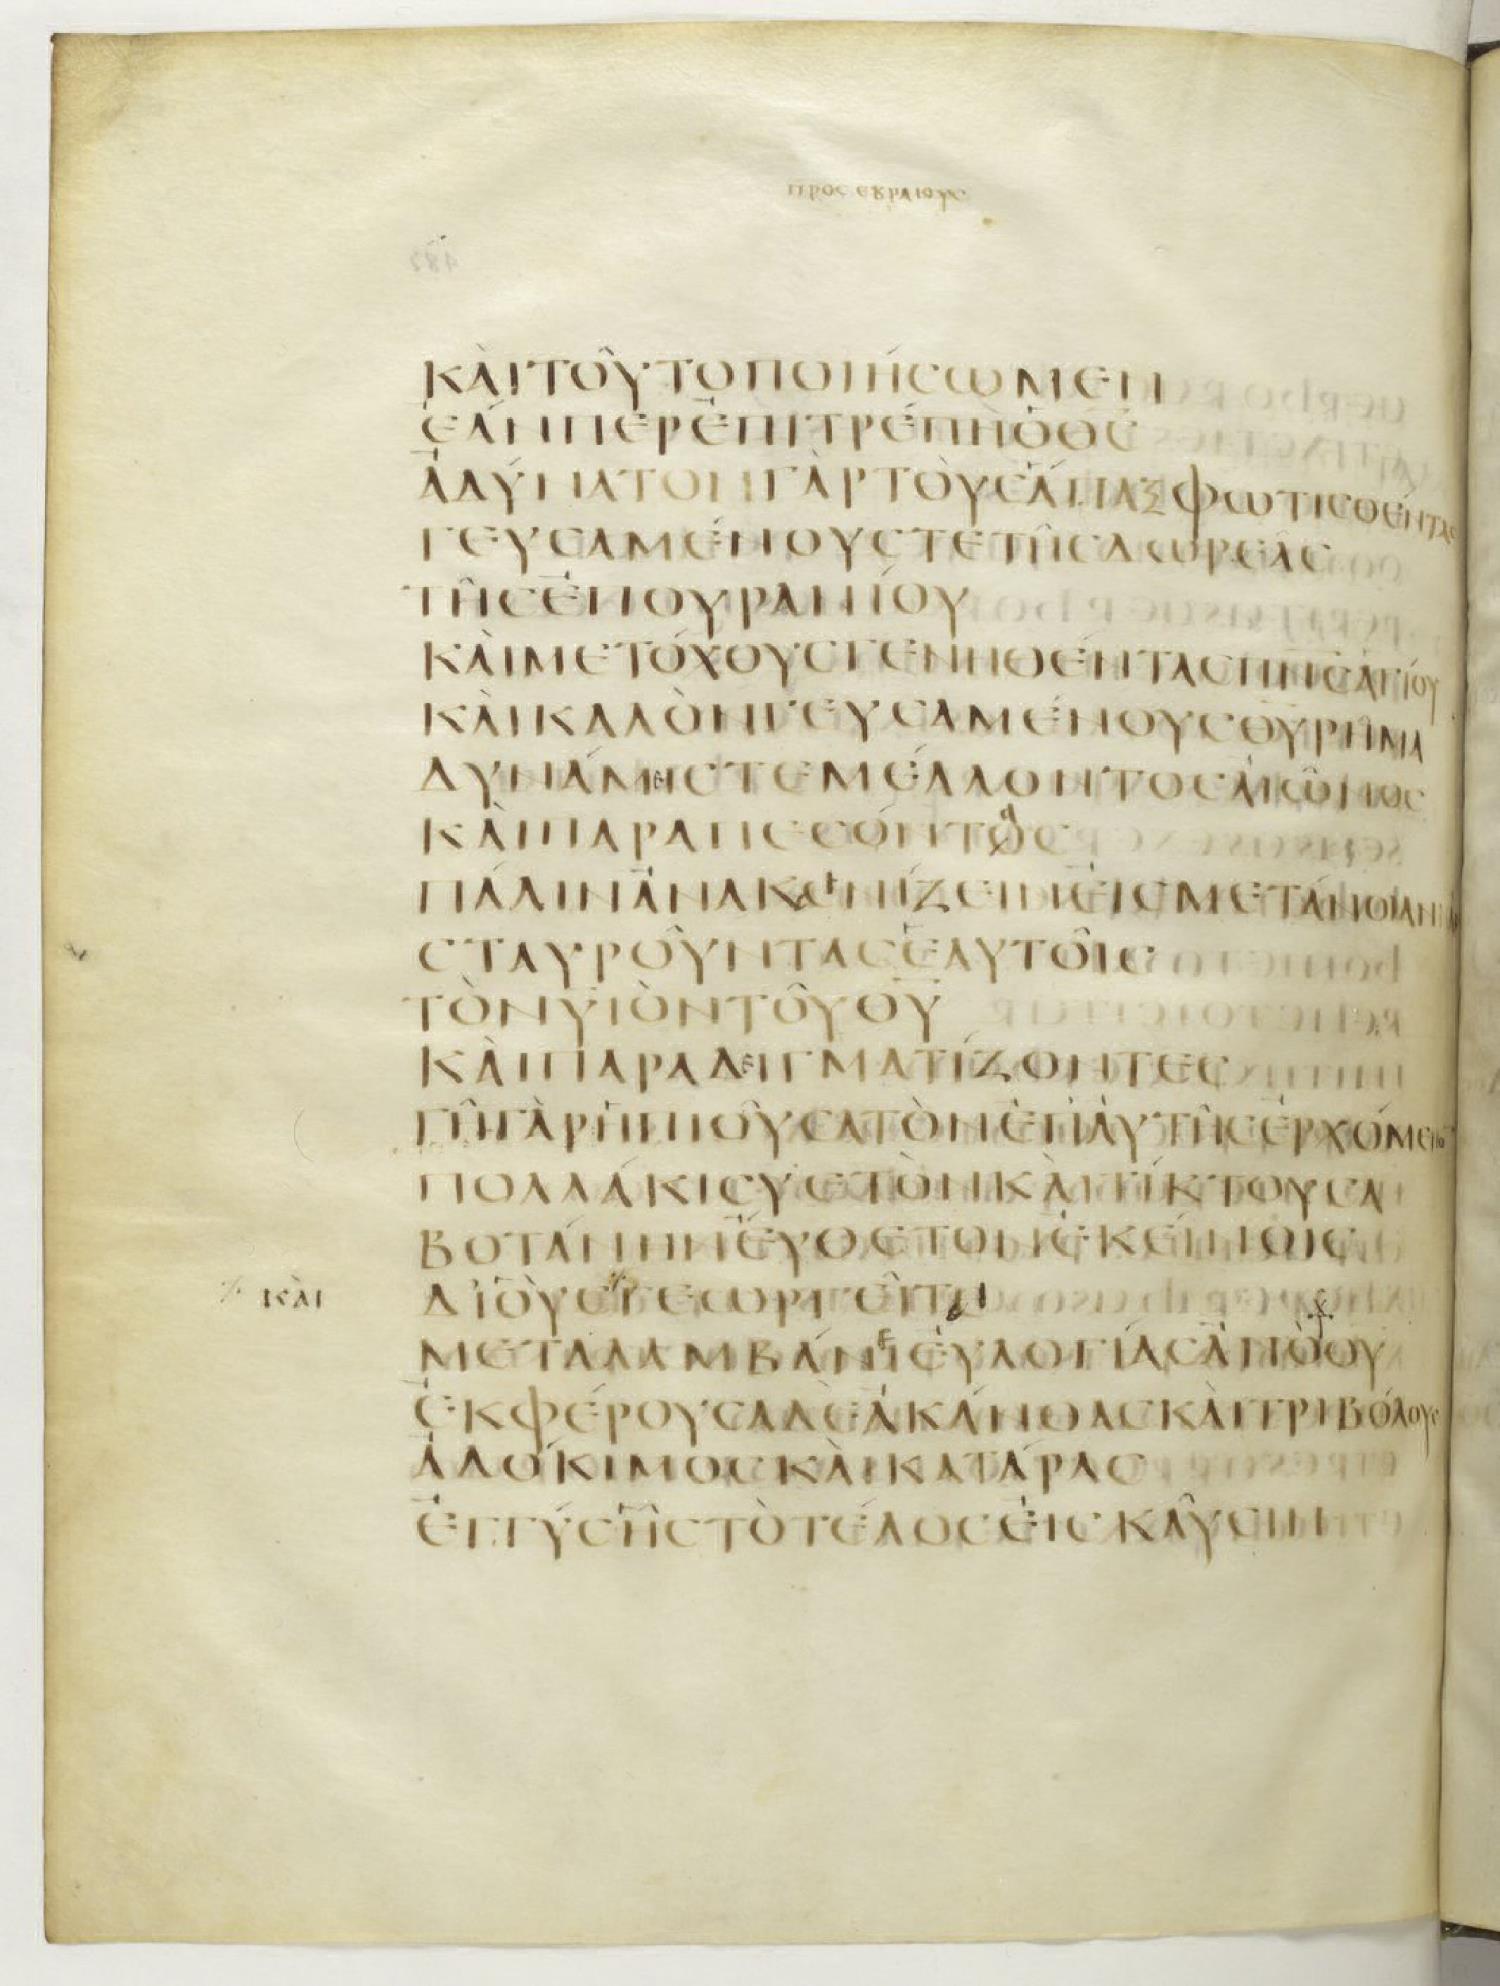 ΚΑΙ ΤΟΥΤΟ ΠΟΙΗΣΩΜΕΝ
ΕΑΝΠΕΡ ΕΠΙΤΡΕΠΗ Ο ΘΣ
ΑΔΥΝΑΤΟΝ ΓΑΡ ΤΟΥΣ ΑΠΑΞ ΦΩΤΙΣΘΕΝΤΑΣ
ΓΕΥΣΑΜΕΝΟΥΣ ΤΕ ΤΗΣ ΔΩΡΕΑΣ
ΤΗΣ ΕΠΟΥΡΑΝΙΟΥ
ΚΑΙ ΜΕΤΟΧΟΥΣ ΓΕΝΗΘΕΝΤΑΣ ΠΝΣ ΑΓΙΟΥ
ΚΑΙ ΚΑΛΟΝ ΓΕΥΣΑΜΕΝΟΥΣ ΘΥ ΡΗΜΑ
ΔΥΝΑΜΕΙΣ ΤΕ ΜΕΛΛΟΝΤΟΣ ΑΙΩΝΟΣ
ΚΑΙ ΠΑΡΑΠΕΣΟΝΤΑΣ
ΠΑΛΙΝ ΑΝΑΚΑΙΝΙΖΕΙΝ ΕΙΣ ΜΕΤΑΝΟΙΑΝ
ΣΤΑΥΡΟΥΝΤΑΣ ΕΑΥΤΟΙΣ
ΤΟΝ ΥΙΟΝ ΤΟΥ ΘΥ
ΚΑΙ ΠΑΡΑΔΕΙΓΜΑΤΙΖΟΝΤΕΣ
ΓΗ ΓΑΡ Η ΠΙΟΥΣΑ ΤΟΝ ΕΠ ΑΥΤΗΣ ΕΡΧΟΜΕΝΟ
ΠΟΛΛΑΚΙΣ ΥΕΤΟΝ ΚΑΙ ΤΙΚΤΟΥΣΑ
ΒΟΤΑΝΗΝ ΕΥΘΕΤΟΝ ΕΚΕΙΝΟΙΣ
ΚΑΙ ΔΙ ΟΥΣ ΓΕΩΡΓΕΙΤΑΙ
ΜΕΤΑΛΑΜΒΑΝΕΙ ΕΥΛΟΓΙΑΣ ΑΠΟ ΘΥ
ΕΚΦΕΡΟΥΣΑ ΔΕ ΑΚΑΝΘΑΣ ΚΑΙ ΤΡΙΒΟΛΟΥΣ
ΑΔΟΚΙΜΟΣ ΚΑΙ ΚΑΤΑΡΑΣ
ΕΓΓΥΣ ΗΣ ΤΟ ΤΕΛΟΣ ΕΙΣ ΚΑΥΣΙΝ